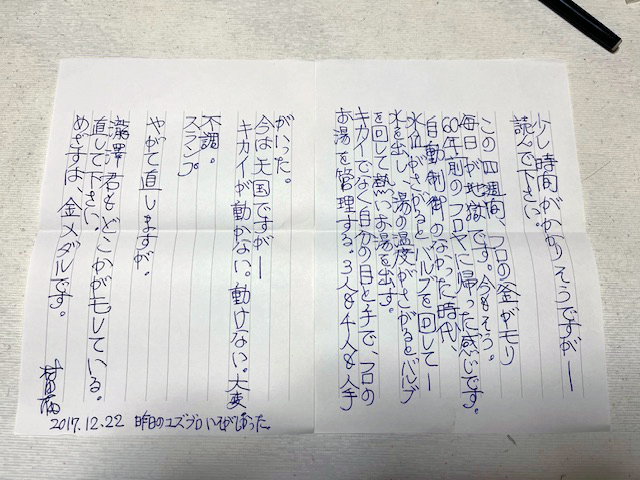 少し時間がかかりそうですが―
読んで下さい。
この四週間、フロの釜がモリ
毎日が地獄です。今もそう。
60年前のフロヤに帰った感じです。
自動制御のなかった時代、
水位がさがるとバルブを回して―
水を出し、湯の温度がさがるとバルブ
を回して熱いお湯を出す。
キカイでなく自分の目と手で、フロの
お湯を管理する。3人も4人も人手
がいった。
今は天国ですが―
キカイが動かない。動けない。大変
不調。
スランプ
やがて直しますが。
瀧澤君もどこかがモレている。
直して下さい。
めざすは、金メダルです。
2017.12.22 昨日のユズブロ